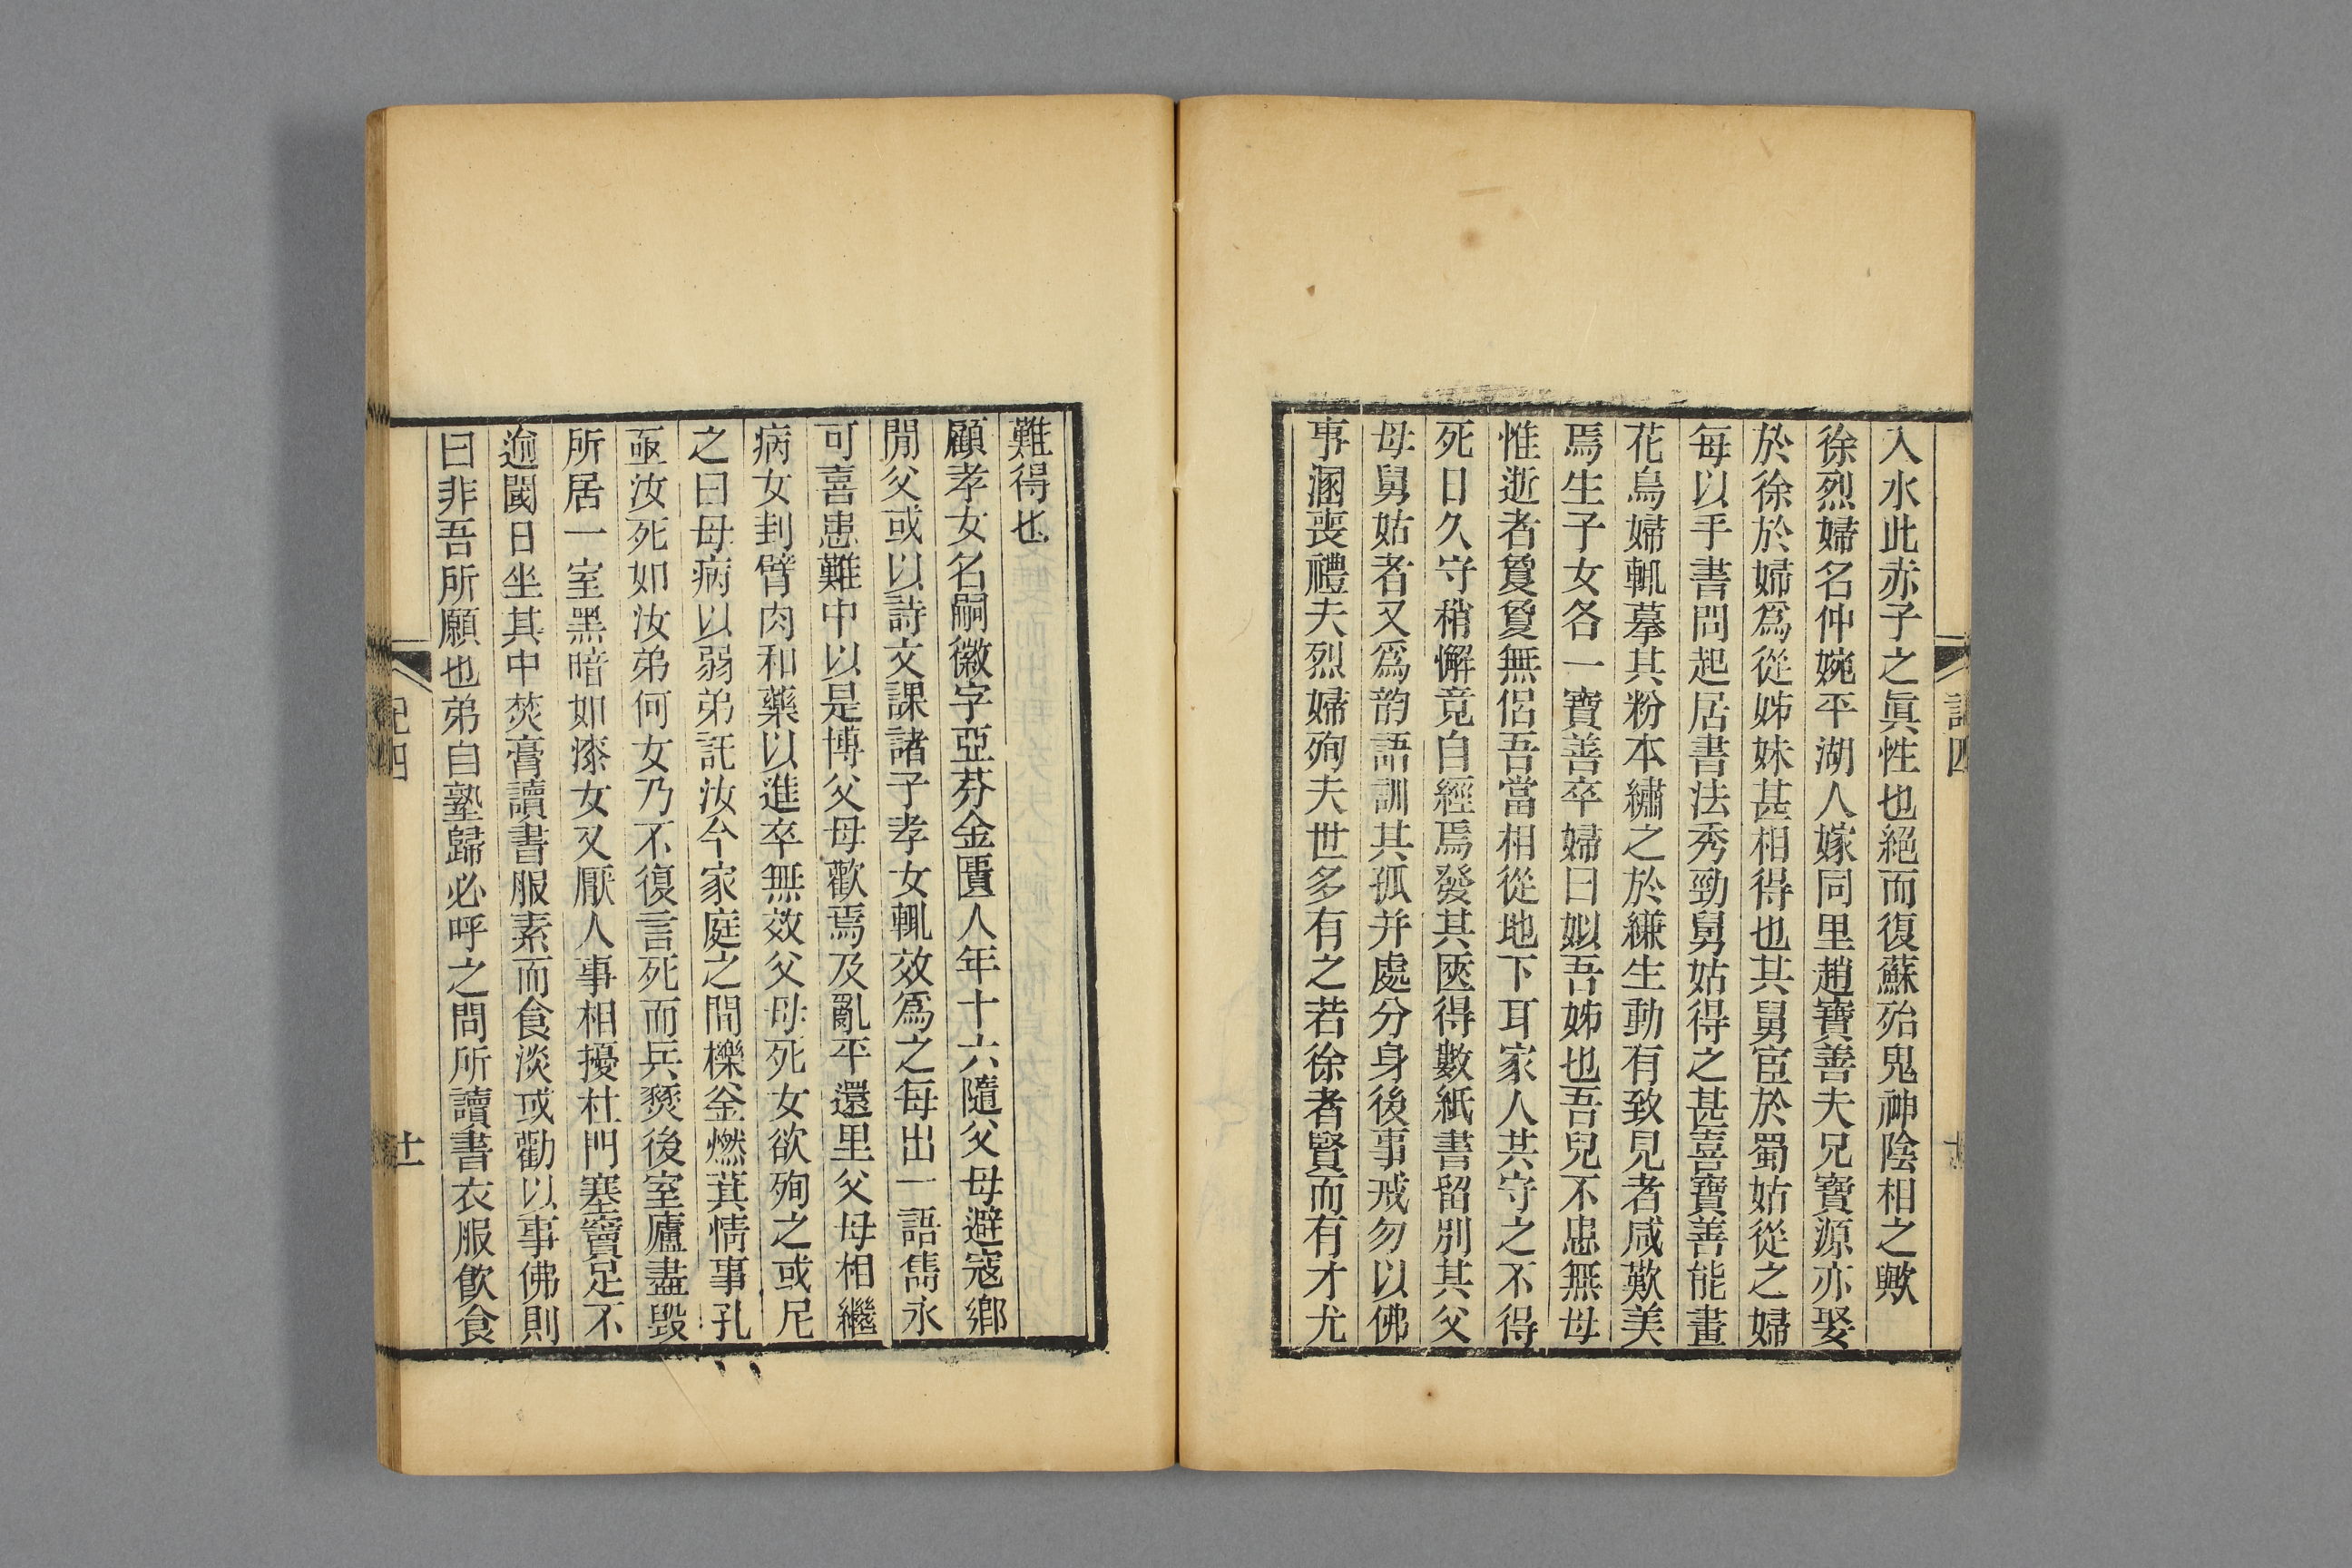 入水此赤子之眞性也絕而復蘇殆鬼神陰相之歟
徐烈婦名仲婉平湖人嫁同里趙寶善夫兄寶源亦娶
於徐於婦爲從姊妹甚相得也其舅宦於蜀姑從之婦
每以手書問起居書法秀勁舅姑得之甚喜寶善能畫
花鳥婦輒摹其粉本繡之於縑生動有致見者咸歎美
焉生子女各一寶善卒婦曰姒吾姊也吾兒不患無母
惟逝者煢煢無侶吾當相從地下耳家人共守之不得
死日久守稍懈竟自經焉發其匧得數紙書留別其父
母舅姑者又爲韵語訓其孤并處分身後事戒勿以佛
事溷喪禮夫烈婦殉夫世多有之若徐者賢而有才尤
難得也
顧孝女名嗣徽字亞芬金匱人年十六隨父母避寇鄉
閒父或以詩文課諸子孝女輒效爲之每出一語雋永
可喜患難中以是博父母歡焉及亂平還里父母相繼
病女刲臂肉和藥以進卒無效父母死女欲殉之或尼
之曰母病以弱弟託汝今家庭之閒櫟釜燃萁情事孔
亟汝死如汝弟何女乃不復言死而兵燹後室廬盡毀
所居一室黑暗如漆女又厭人事相擾杜門塞竇足不
逾閾日坐其中焚膏讀書服素而食淡或勸以事佛則
曰非吾所願也弟自塾歸必呼之問所讀書衣服飲食
記四
十一